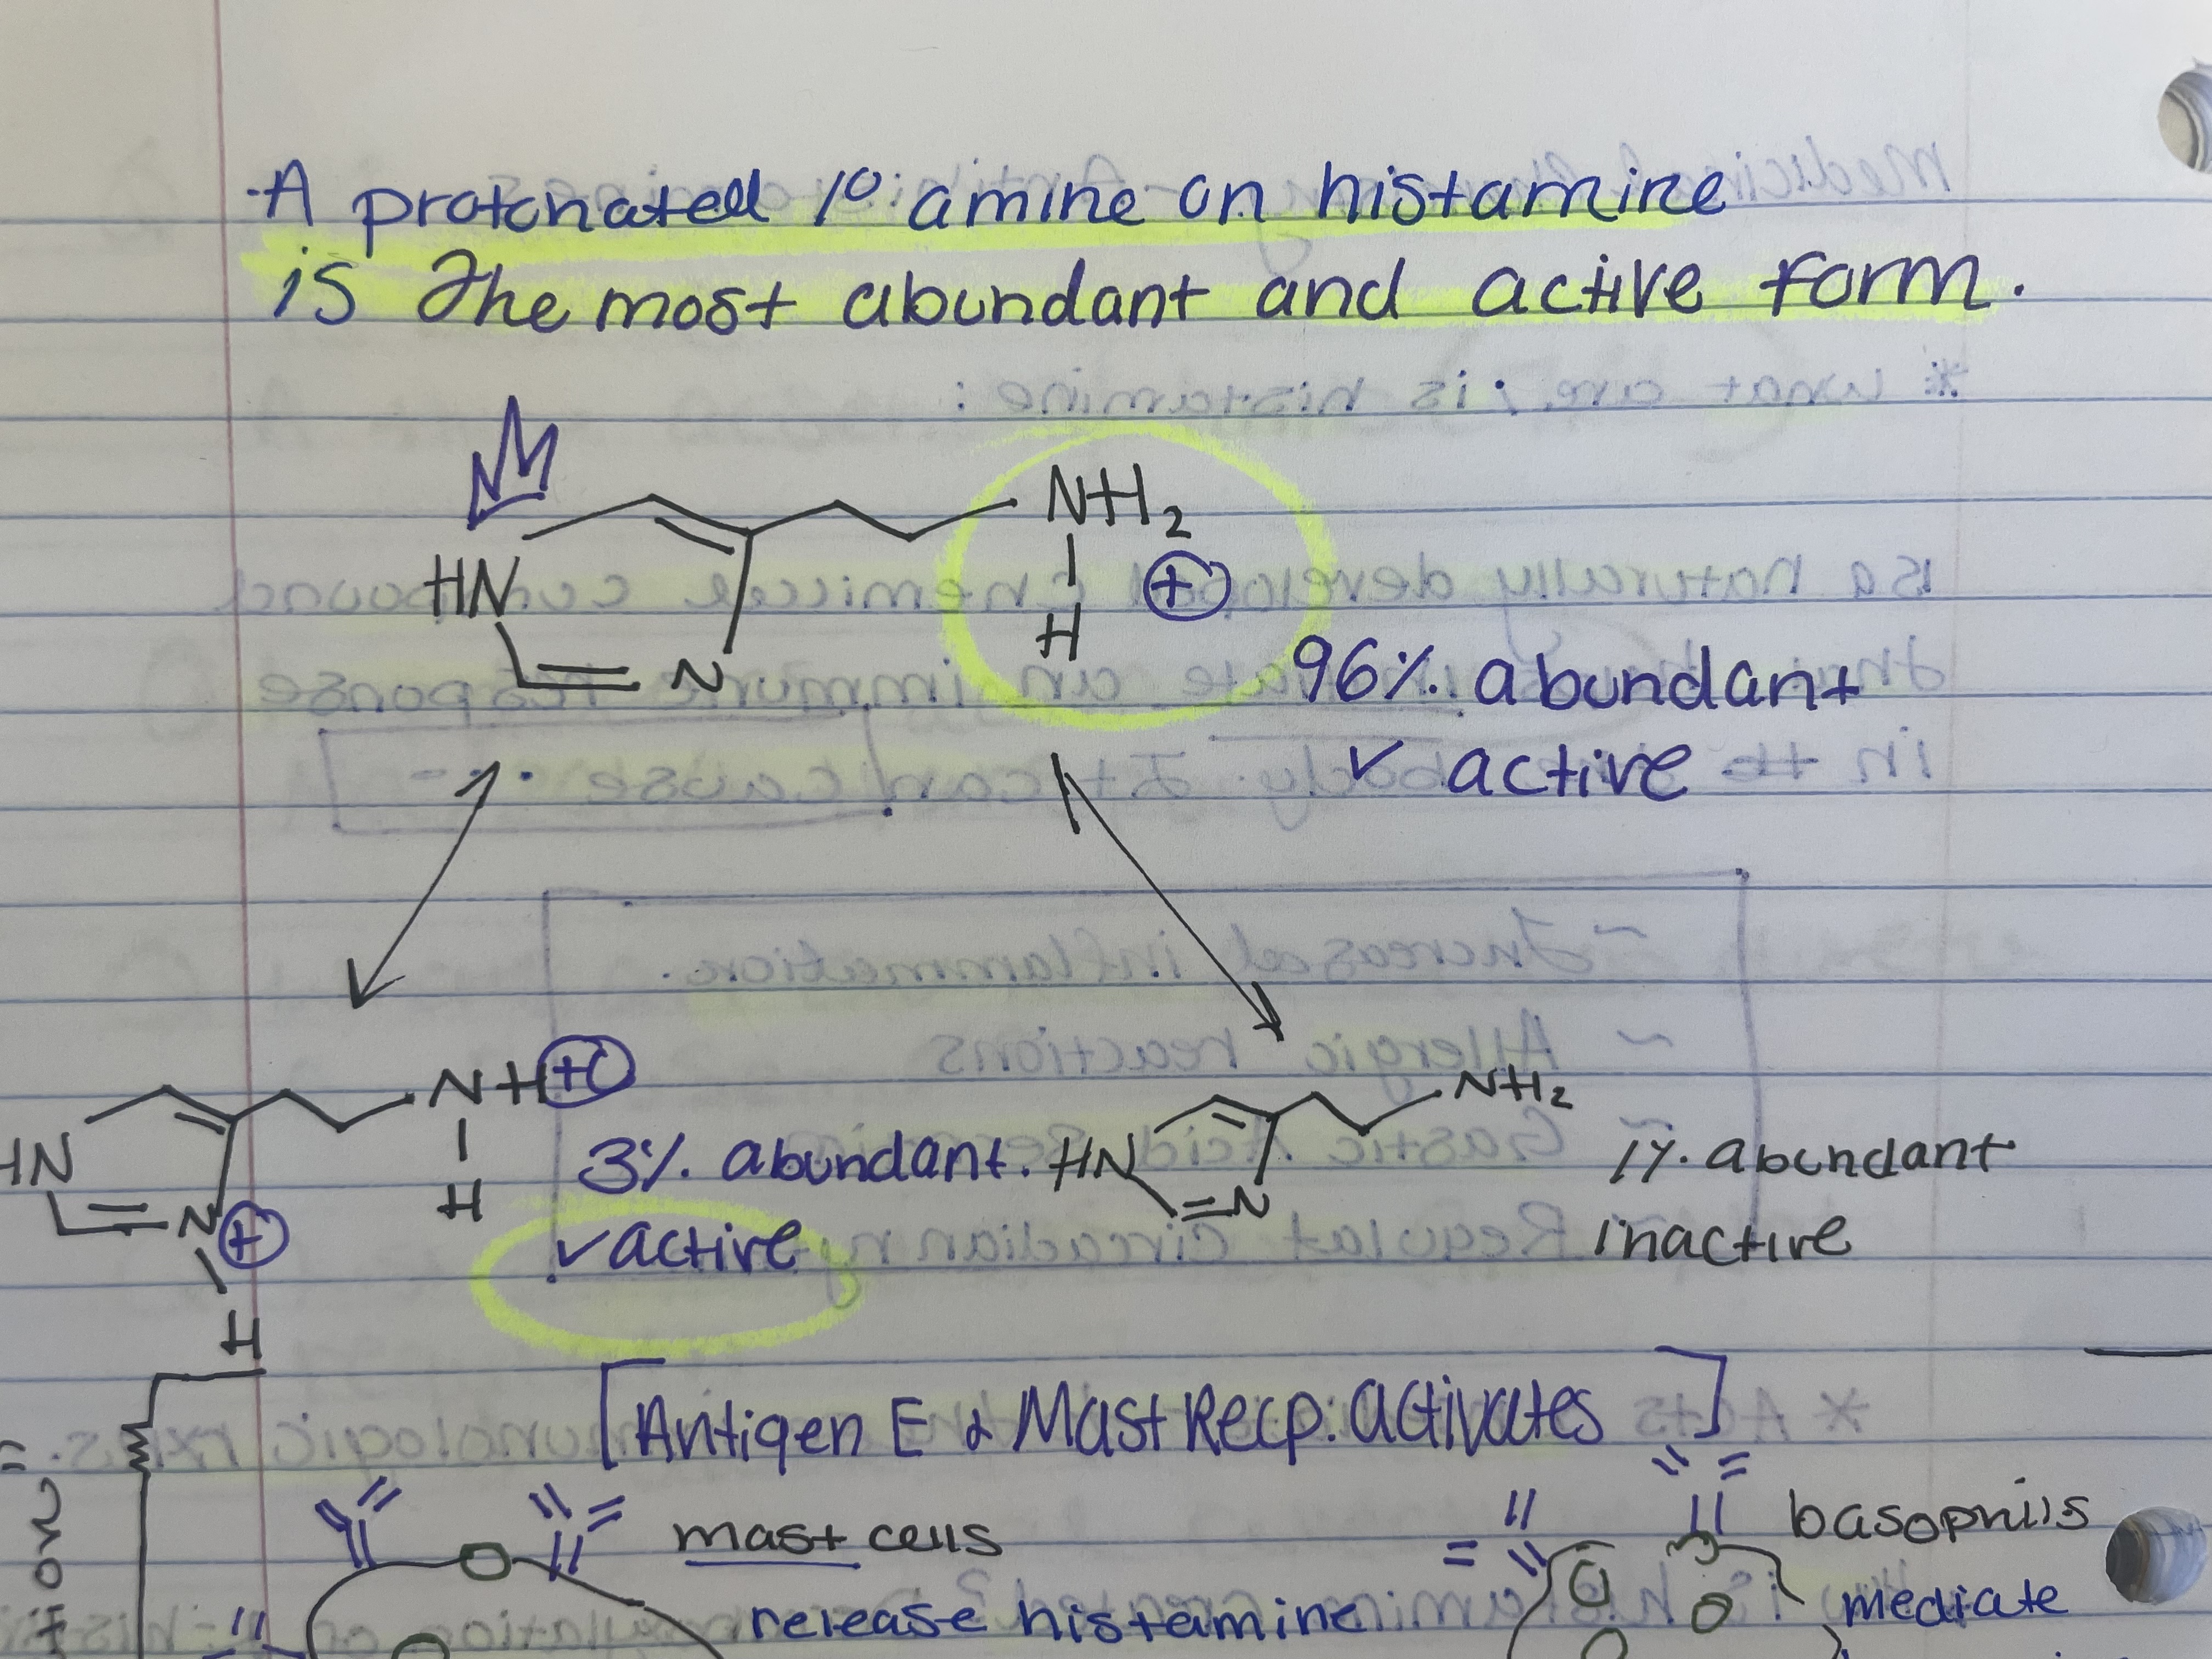 ·A protonated 1° amine on histamine
is the most abundant and active form.
NH2
HN
H
+
N
96% abundant
✓ active
NH+
HN
H
N+
H
3% abundant.
✓ active
NH2
HN
N
1% abundant
inactive
[Antigen E & Mast Recp. activates]
mast cells
release histamine
basophils
mediate